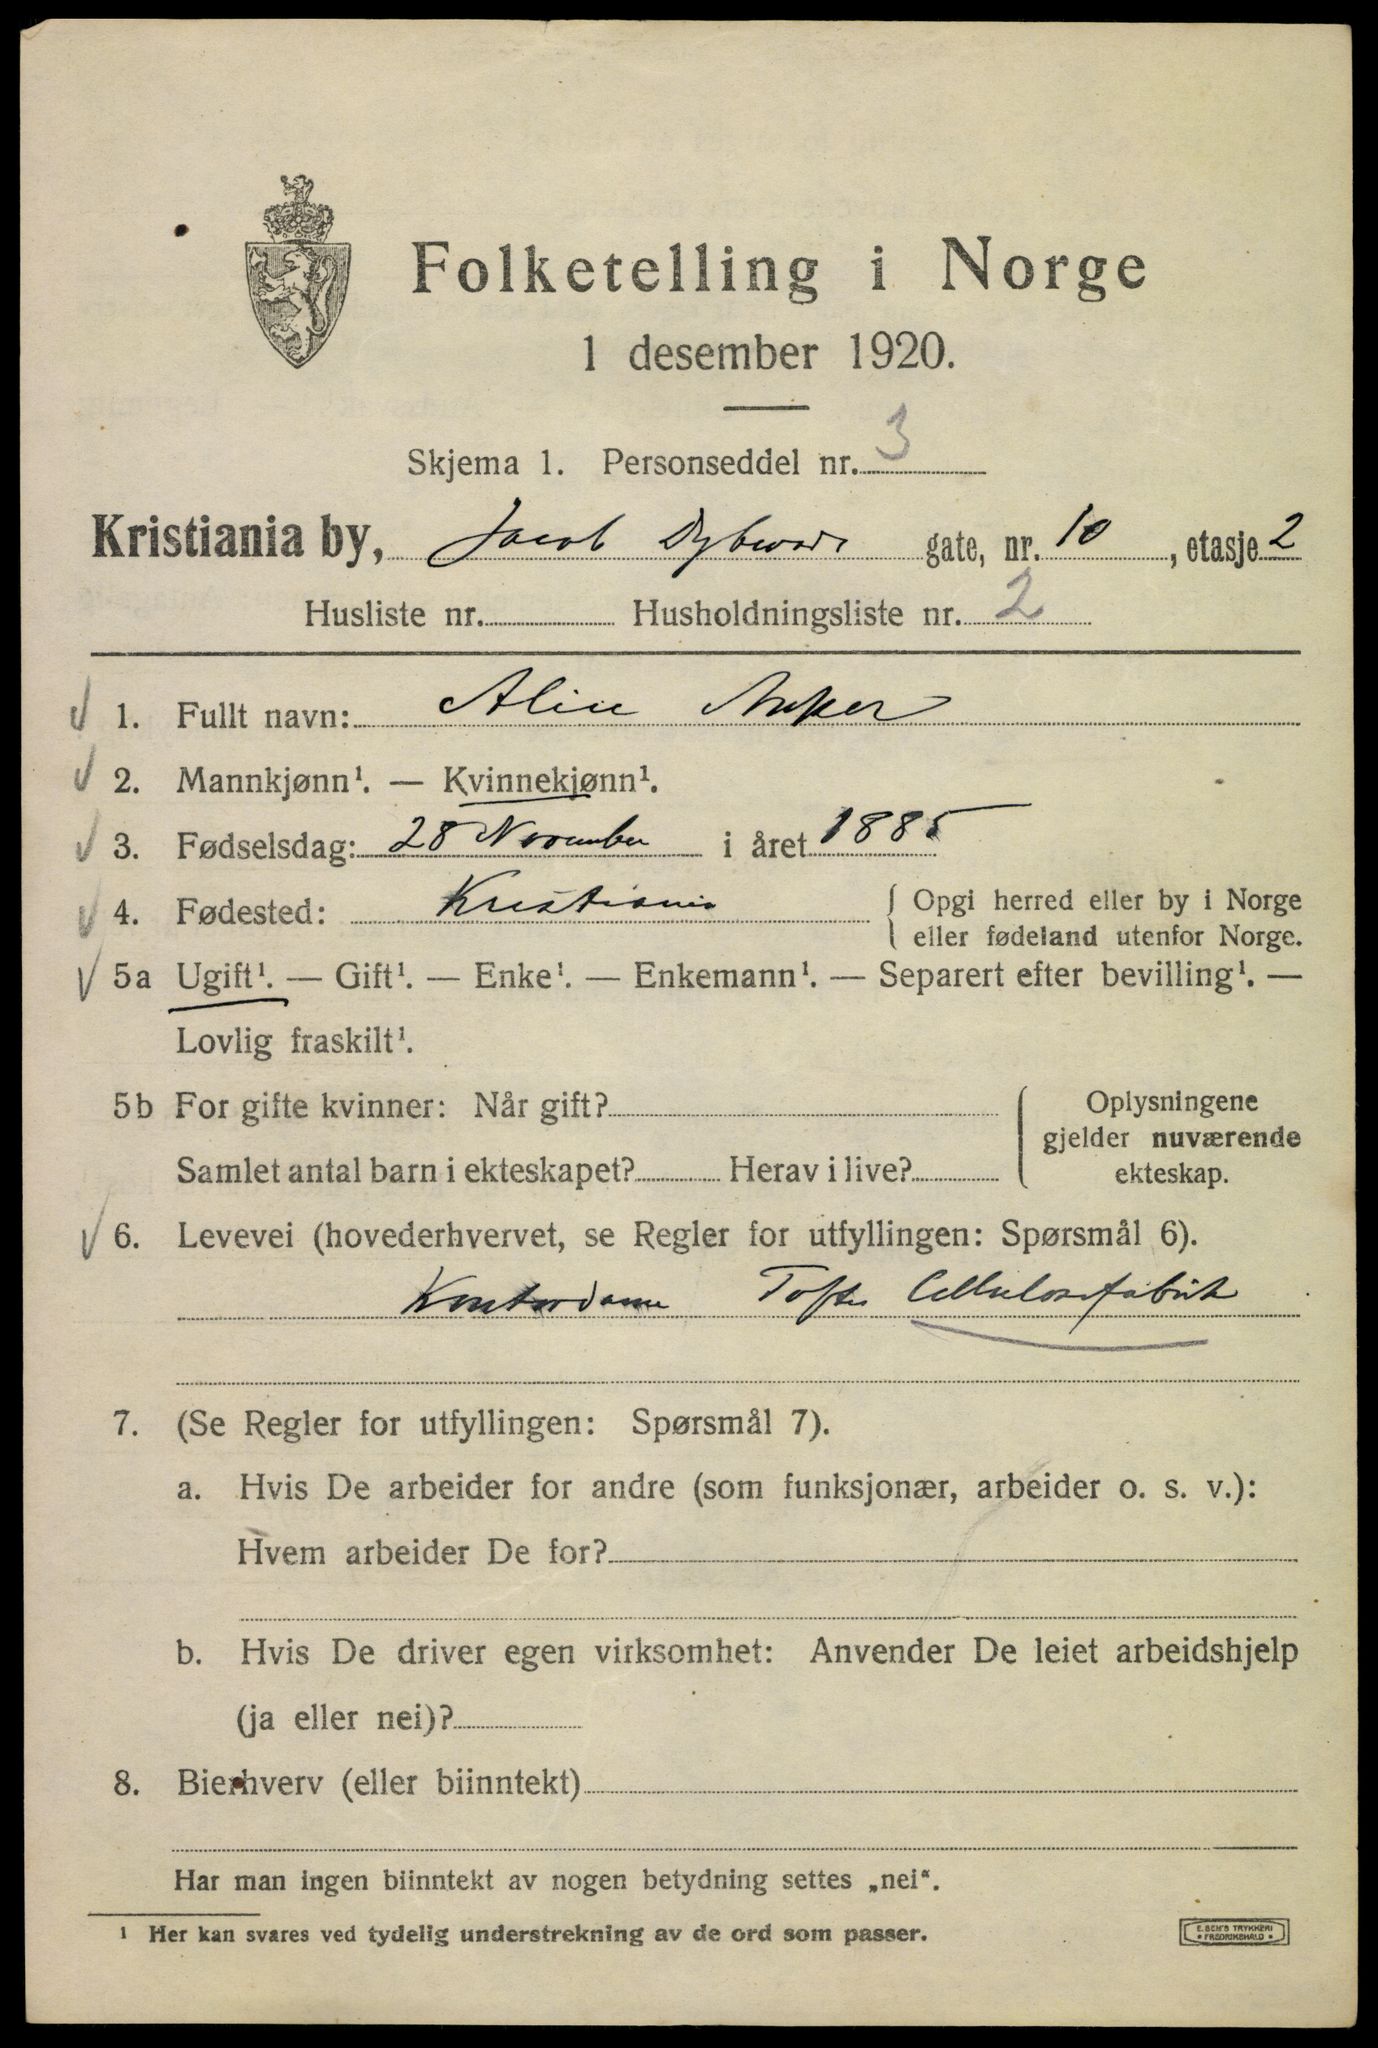 Folketelling i Norge
1 desember 1920.
Skjema 1. Personseddel nr. 3
Kristiania by, Jacob Dybwads gate, nr. 10, etasje 2
Husliste nr. Husholdningsliste nr. 2
1. Fullt navn: Alice Anker
2. Mannkjønn¹. — Kvinnekjønn¹.
3. Fødselsdag: 28 November i året 1885
4. Fødested: Kristiania { Opgi herred eller by i Norge
eller fødeland utenfor Norge.
5a Ugift¹. — Gift¹. — Enke¹. — Enkemann¹. — Separert efter bevilling¹. —
Lovlig fraskilt¹.
5b For gifte kvinner: Når gift?
Samlet antal barn i ekteskapet? Herav i live?
Oplysningene
gjelder nuværende
ekteskap.
6. Levevei (hovederhvervet, se Regler for utfyllingen: Spørsmål 6).
Kontordame Tofte Cellulosefabrik
7. (Se Regler for utfyllingen: Spørsmål 7).
a. Hvis De arbeider for andre (som funksjonær, arbeider o. s. v.):
Hvem arbeider De for?
b. Hvis De driver egen virksomhet: Anvender De leiet arbeidshjelp
(ja eller nei)?
8. Bierhverv (eller biinntekt)
Har man ingen biinntekt av nogen betydning settes „nei“.
¹ Her kan svares ved tydelig understrekning av de ord som passer.
E. SEM'S TRYKKERI
* FREDRIKSHALD *